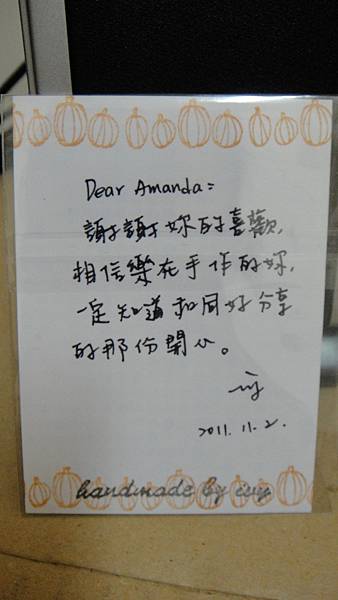 Dear Amanda：
謝謝妳的喜歡，
相信樂在手作的妳，
一定知道和同好分享
的那份開心。
ivy
2011.11.2.
handmade by ivy